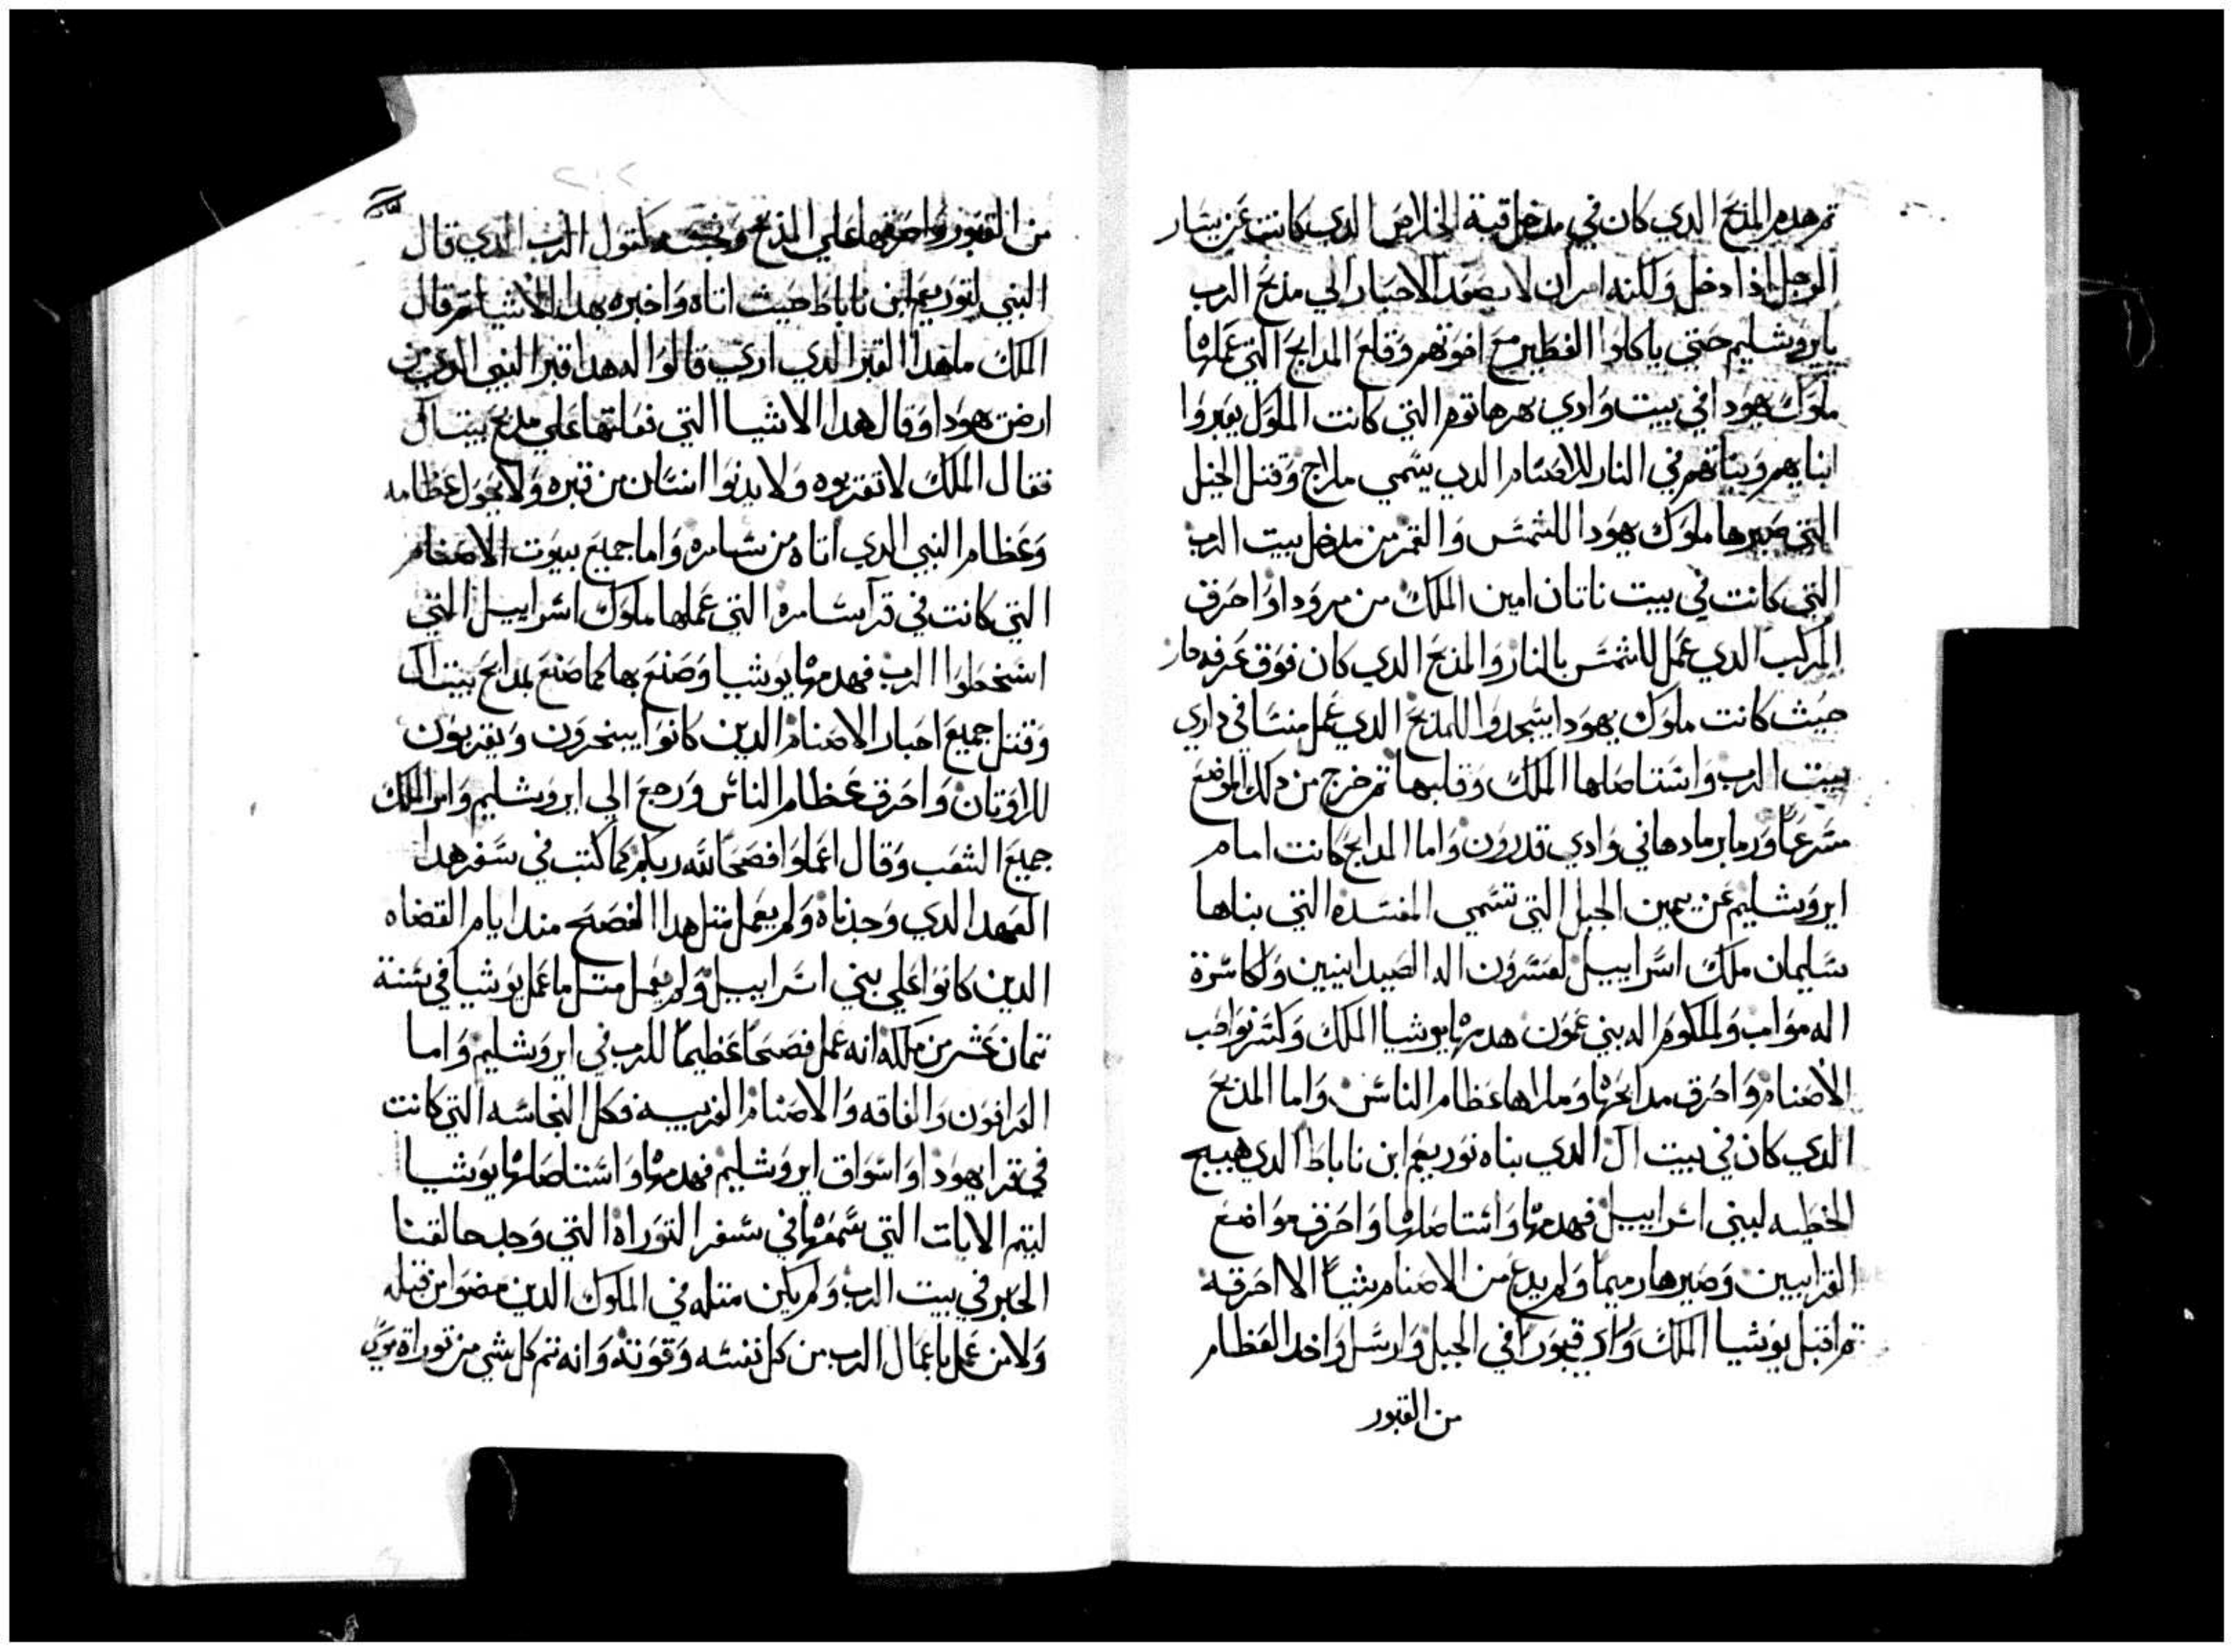 ثم هدم المذبح الدي كان في مدخل قبة الخلاص الدي كانت عن يسار
الرجل اذا دخل ولكنه امر ان لا يصعد الاحبار الي مذبح الرب
بايروشليم حتي ياكلوا الفطير مع اخوتهم وقلع المدابح التي عملها
ملوك يهودا في بيت وادي بهرهاتوم التي كانت الملوك يعبروا
ابنايهم وبناتهم في النار للاصنام الدي يسمي ملراج وقتل الخيل
التي صيرها ملوك يهودا للشمس والقمر من مدخل بيت الرب
التي كانت في بيت ناتان امين الملك من مرودا واحرق
المركب الدي عمل للشمس بالنار والمذبح الدي كان فوق غرفه حار
حيث كانت ملوك يهودا يسجدوا للمذبح الدي عمل منسا في داري
بيت الرب واستاصلها الملك وقلبها ثم خرج من دلك الموضع
مسرعًا ورما برمادها في وادي قدرون واما المدابح كانت امام
ايروشليم عن يمين الجبل التي تسمي المفسده التي بناها
سليمان ملك اسراييل لعسرون اله الصيدانيين ولكاسرة
اله مواب ولملكوم اله بني عمون هدمها يوشيا الملك وكسر نواصب
الاصنام واحرق مدابحها وملاها عظام الناس واما المذبح
الدي كان في بيت ال الدي بناه نوربعم ابن ناباط الدي هييج
الخطيه لبني اسراييل فهدمها واستاصلها واحرق مواضع
القرابيين وصيرها رميمًا ولم يدع من الاصنام شياً الا احرقه
ثم اقبل يوشيا الملك وراي قبورًا في الجبل وارسل واخد العظام
من القبور
من القبور واحرقها علي المذبح ونجسه كقول الرب الدي قال
النبي لنوربعم ابن ناباط حيث اتاه واخبره بهدا الاشيا ثم قال
الملك ما هدا القبر الدي اري قالوا له هدا قبر النبي الدي من
ارض يهودا وقال هدا الاشيا التي فعلتها علي مذبح بيت ال
فقال الملك لا تقتربوه ولا يدنوا انسان من قبره ولا يحول عظامه
وعظام النبي الدي اتاه من سامره واما جميع بيوت الاصنام
التي كانت في قرا سامره التي عملها ملوك اسراييل التي
اسخطوا الرب فهدمها يوشيا وصنع بها كما صنع بمدابح بيت ال
وقتل جميع احبار الاصنام الدين كانوا يبنحرون ويقربون
للاوتان واحرق عظام الناس ورجع الي ايروشليم وامر الملك
جميع الشعب وقال اعملوا فصحًا لله ربكم كما كتب في سفر هدا
العهد الدي وجدناه ولم يعمل متل هدا الفصح مند ايام القضاه
الدين كانوا علي بني اسراييل ولم يعمل متل ما عمل يوشيا في سنة
تمان عشر من ملكه انه عمل فصحًا عظيمًا للرب في ايروشليم واما
العرافون والفاقه والاصنام الغريبه فكل النجاسه التي كانت
في قرا يهودا واسواق ايروشليم فهدمها واستاصلها يوشيا
ليتم الايات التي سمعها في سفر التوراة التي وجد حالقنا
الحبر في بيت الرب ولم يكن متله في الملوك الدين مضوا من قبله
ولا من عمل باعمال الرب من كل نفسه وقوته وانه تم كل شي من توراة موسي